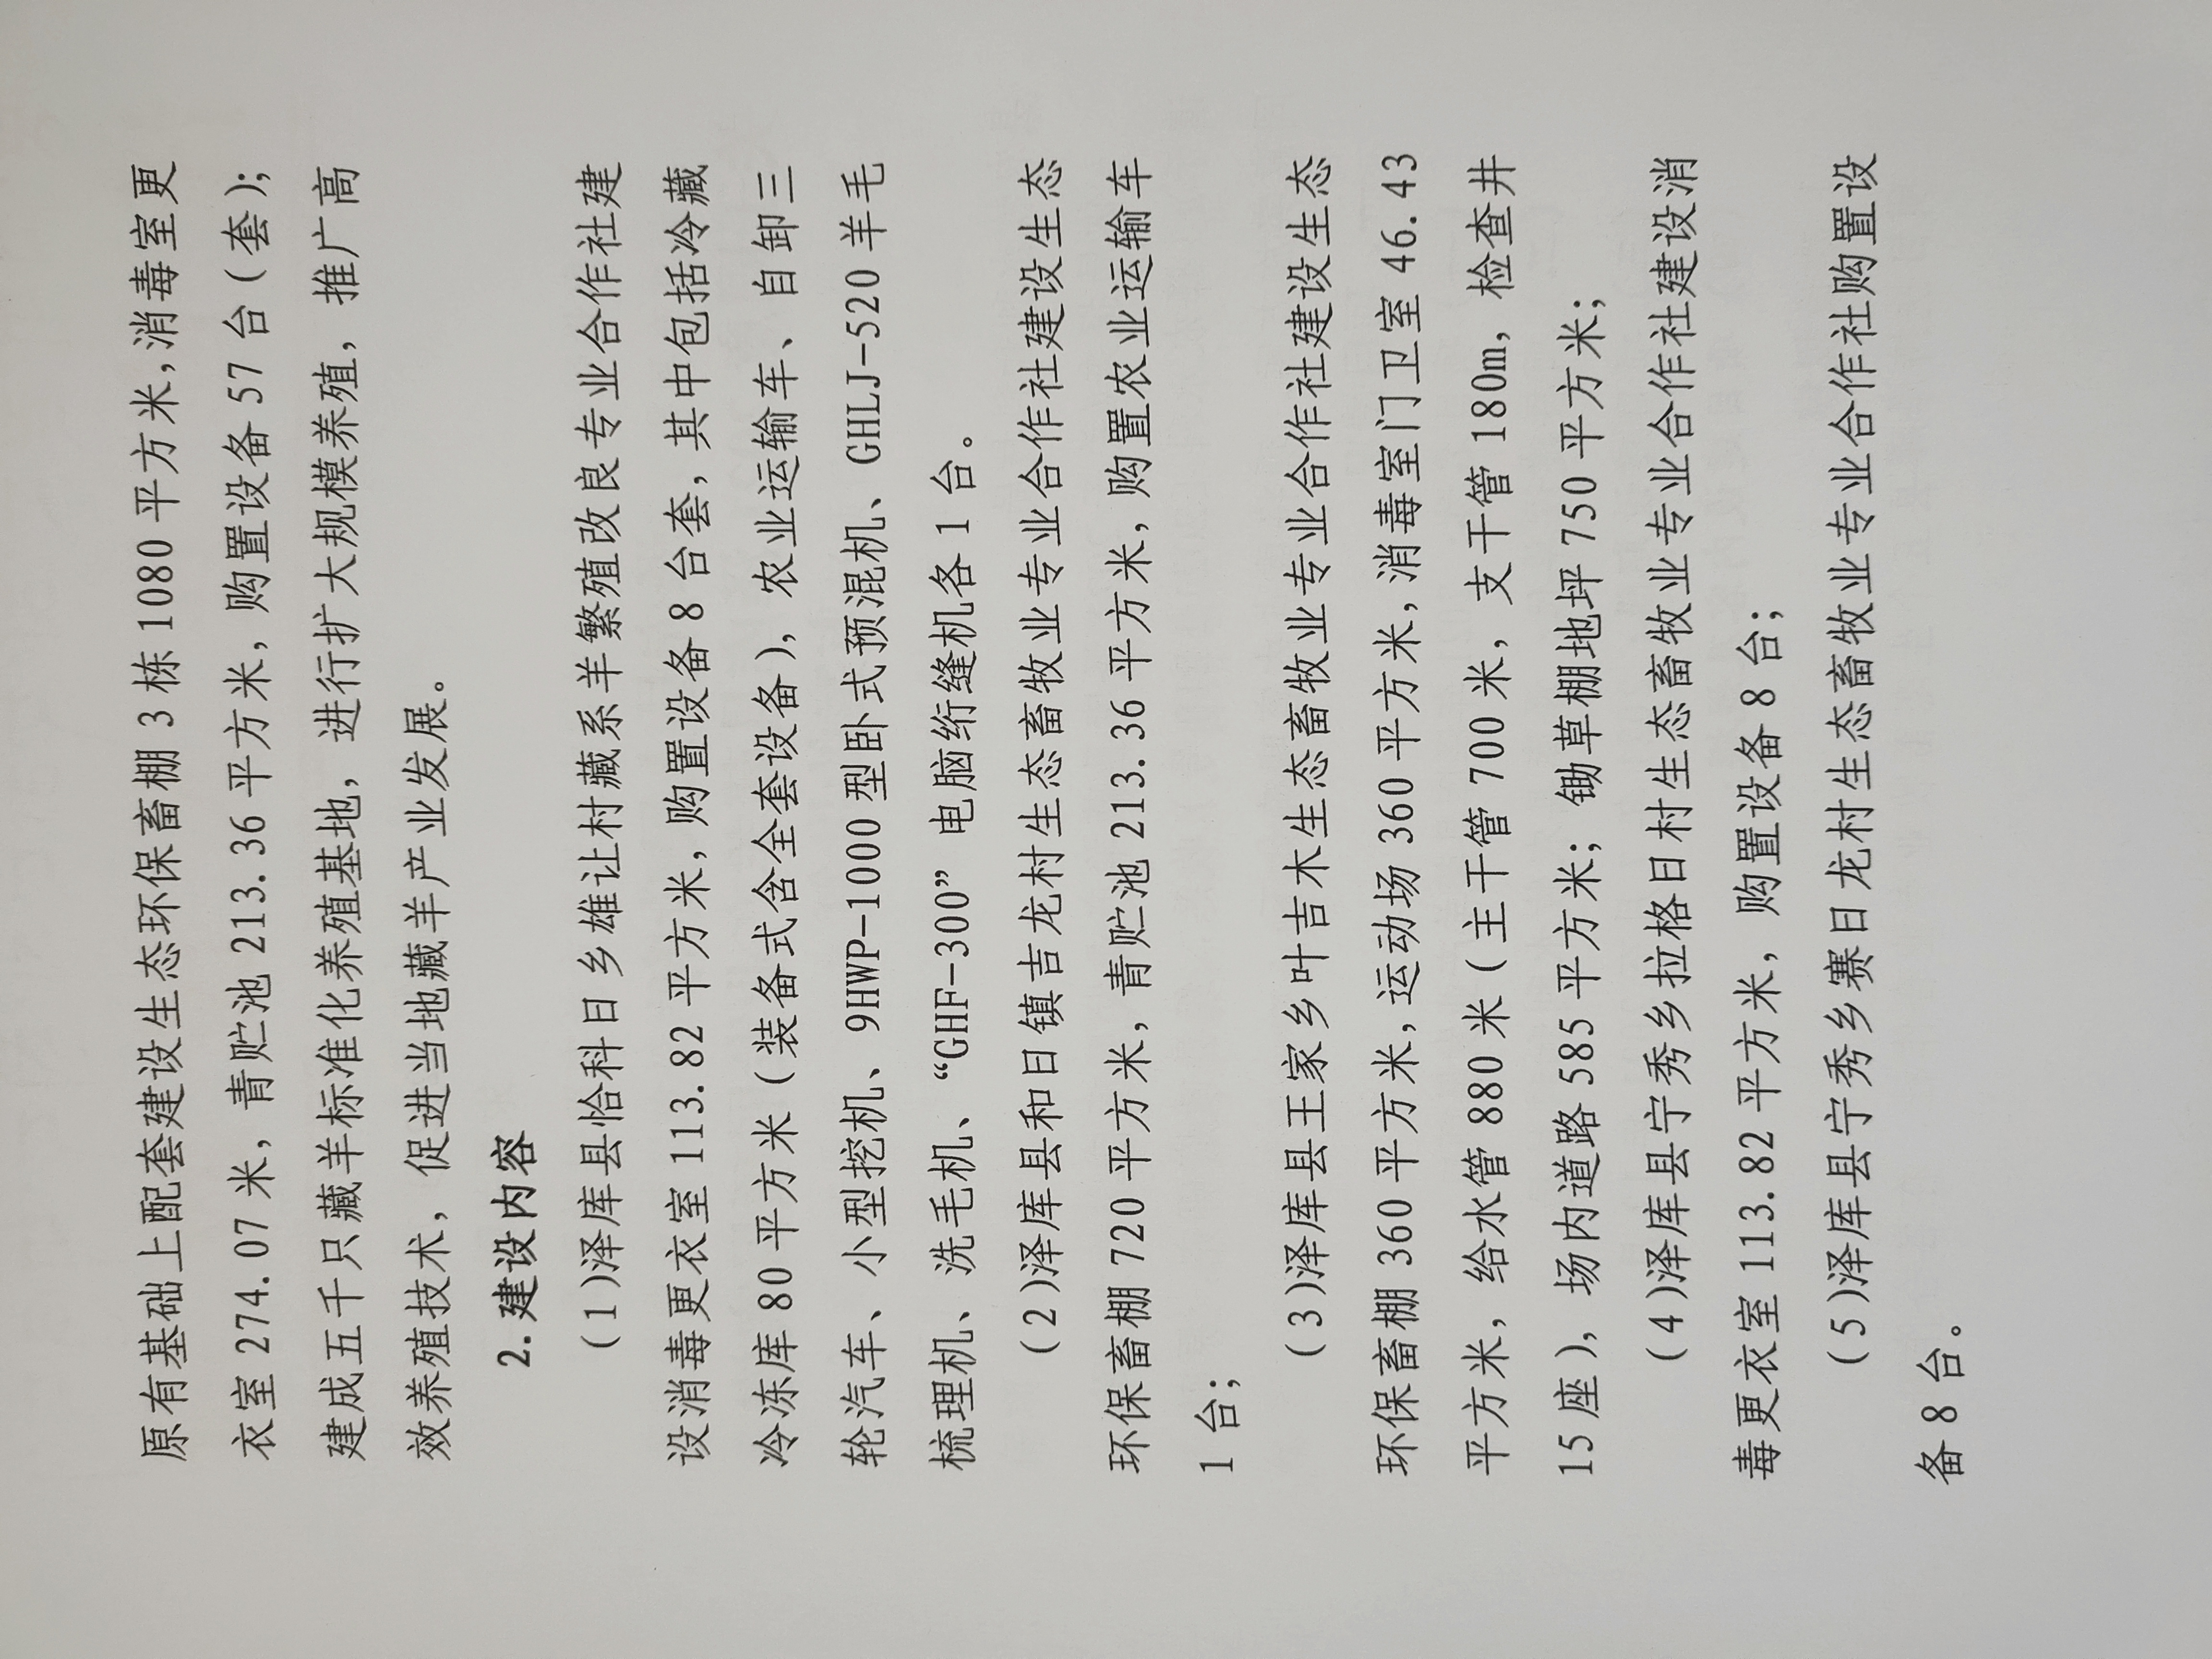 原有基础上配套建设生态环保畜棚 3 栋 1080 平方米,消毒室更
衣室 274.07 米，青贮池 213.36 平方米，购置设备 57 台（套）；
建成五千只藏羊标准化养殖基地，进行扩大规模养殖，推广高
效养殖技术，促进当地藏羊产业发展。
2.建设内容
（1)泽库县恰科日乡雄让村藏系羊繁殖改良专业合作社建
设消毒更衣室 113.82 平方米，购置设备 8 台套，其中包括冷藏
冷冻库 80 平方米（装备式含全套设备），农业运输车、自卸三
轮汽车、小型挖机、9HWP-1000 型卧式预混机、GHLJ-520 羊毛
梳理机、洗毛机、“GHF-300”电脑绗缝机各 1 台。
（2)泽库县和日镇吉龙村生态畜牧业专业合作社建设生态
环保畜棚 720 平方米，青贮池 213.36 平方米，购置农业运输车
1 台；
（3)泽库县王家乡叶吉木生态畜牧业专业合作社建设生态
环保畜棚 360 平方米,运动场 360 平方米,消毒室门卫室 46.43
平方米，给水管 880 米（主干管 700 米，支干管 180m，检查井
15 座），场内道路 585 平方米；锄草棚地坪 750 平方米；
（4)泽库县宁秀乡拉格日村生态畜牧业专业合作社建设消
毒更衣室 113.82 平方米，购置设备 8 台；
（5)泽库县宁秀乡赛日龙村生态畜牧业专业合作社购置设
备 8 台。